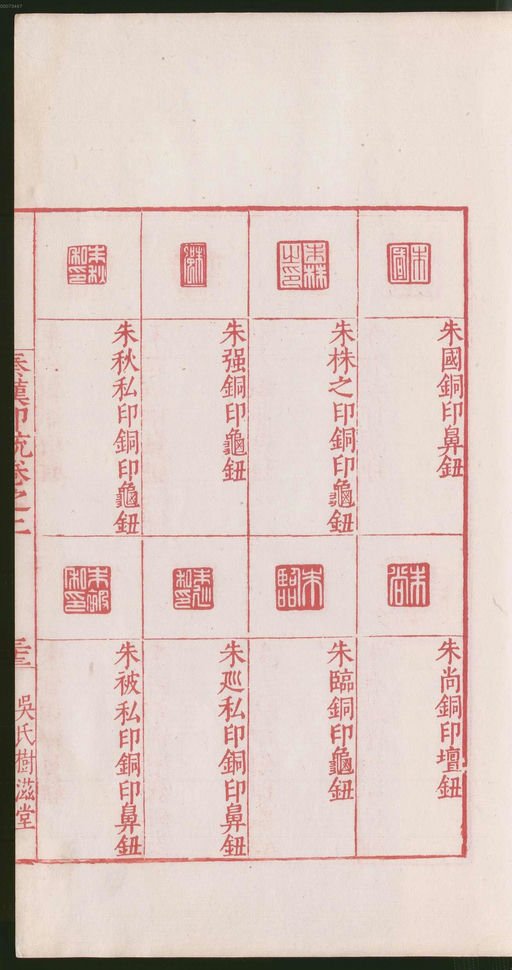 00073467
朱國銅印鼻鈕
朱株之印銅印龜鈕
朱强銅印龜鈕
朱秋私印銅印龜鈕
朱尚銅印壇鈕
朱臨銅印龜鈕
朱巡私印銅印鼻鈕
朱被私印銅印鼻鈕
秦漢印統卷之二
吳氏樹滋堂